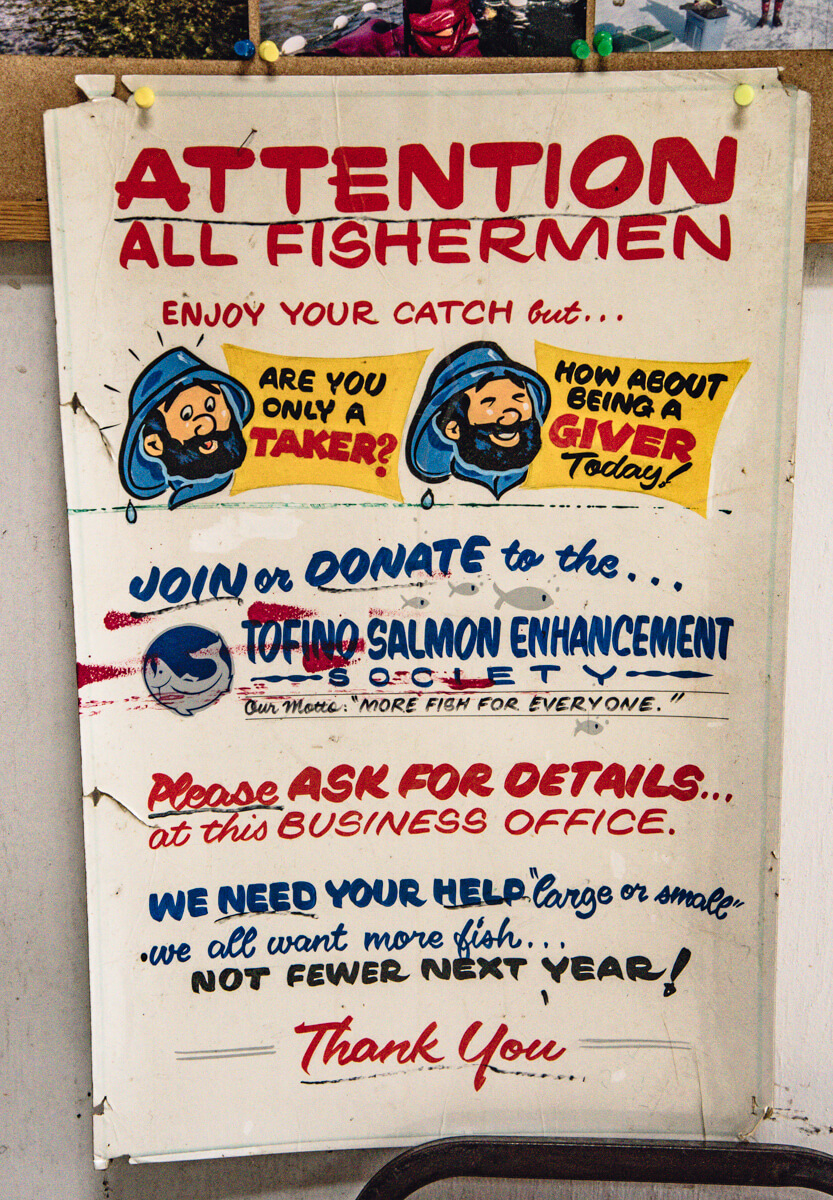 ATTENTION
ALL FISHERMEN
ENJOY YOUR CATCH but...
ARE YOU
ONLY A
TAKER?
HOW ABOUT
BEING A
GIVER
Today!
JOIN or DONATE to the...
TOFINO SALMON ENHANCEMENT
SOCIETY
Our Motto: "MORE FISH FOR EVERYONE."
Please ASK FOR DETAILS...
at this BUSINESS OFFICE.
WE NEED YOUR HELP "large or small"
we all want more fish...
NOT FEWER NEXT YEAR!
Thank You